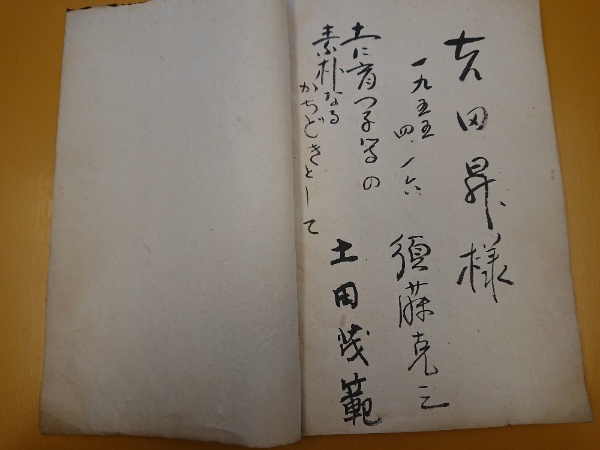 吉田昇様
一九五五
四、一六
須藤克三
土に育つ子等の
素朴なる
かちどきとして
土田茂範